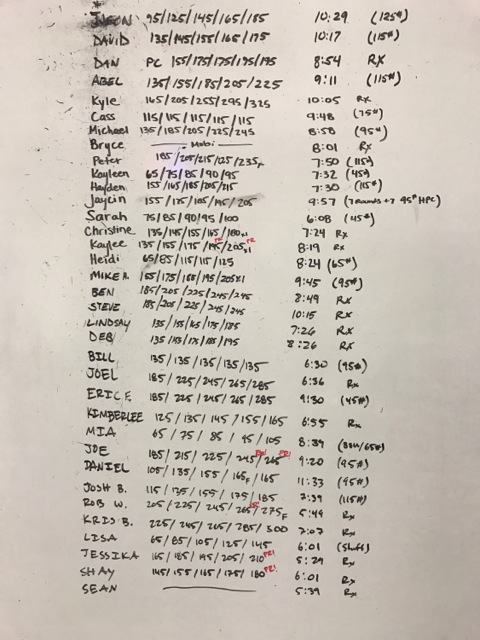 JASON 95/125/145/165/185 10:29 (125#)
DAVID 135/145/155/165/175 10:17 (115#)
DAN PC 155/175/175/195/195 8:54 RX
ABEL 135/155/185/205/225 9:11 (115#)
Kyle 165/205/255/295/325 10:05 Rx
Cass 115/115/115/115/115 9:48 (75#)
Michael 135/185/205/225/245 8:58 (95#)
Bryce Mobi 8:01 Rx
Peter 185/205/215/225/235F 7:50 (115#)
Kayleen 65/75/85/90/95 7:32 (45#)
Hayden 155/165/185/205/215 7:30 (115#)
Jaycin 155/175/185/195/205 9:57 (7 rounds + 7 95# HPC)
Sarah 75/85/90/95/100 6:08 (45#)
Christine 135/145/155/165/180x1 7:24 Rx
Kaylee 135/155/175/195 PR/205x1 PR 8:19 Rx
Heidi 65/85/115/115/125 8:24 (65#)
MIKE H. 155/175/185/195/205x1 9:45 (95#)
BEN 185/205/225/245/245 8:49 Rx
STEVE 185/205/225/245/245 10:15 Rx
LINDSAY 135/155/165/175/185 7:26 Rx
DEB 135/155/175/185/195 8:26 Rx
BILL 135/135/135/135/135 6:30 (95#)
JOEL 185/225/245/265/285 6:36 Rx
ERIC F. 185/225/245/265/285 9:30 (45#)
KIMBERLEE 125/135/145/155/165 6:55 Rx
MIA 65/75/85/95/105 8:39 (65#)
JOE 185/215/225/245 PR!/265 PR! 9:20 (95#)
DANIEL 105/135/155/165F/165 11:33 (95#)
JOSH B. 115/135/155/175/185 7:39 (115#)
ROB W. 205/225/245/265 PR/275F 5:49 Rx
KRIS B. 225/245/265/285/300 7:07 Rx
LISA 65/85/105/125/145 6:01
JESSIKA 165/185/195/205/210 PR! 5:29 Rx
SHAY 145/155/165/175/180 PR! 6:01 Rx
SEAN 5:39 Rx